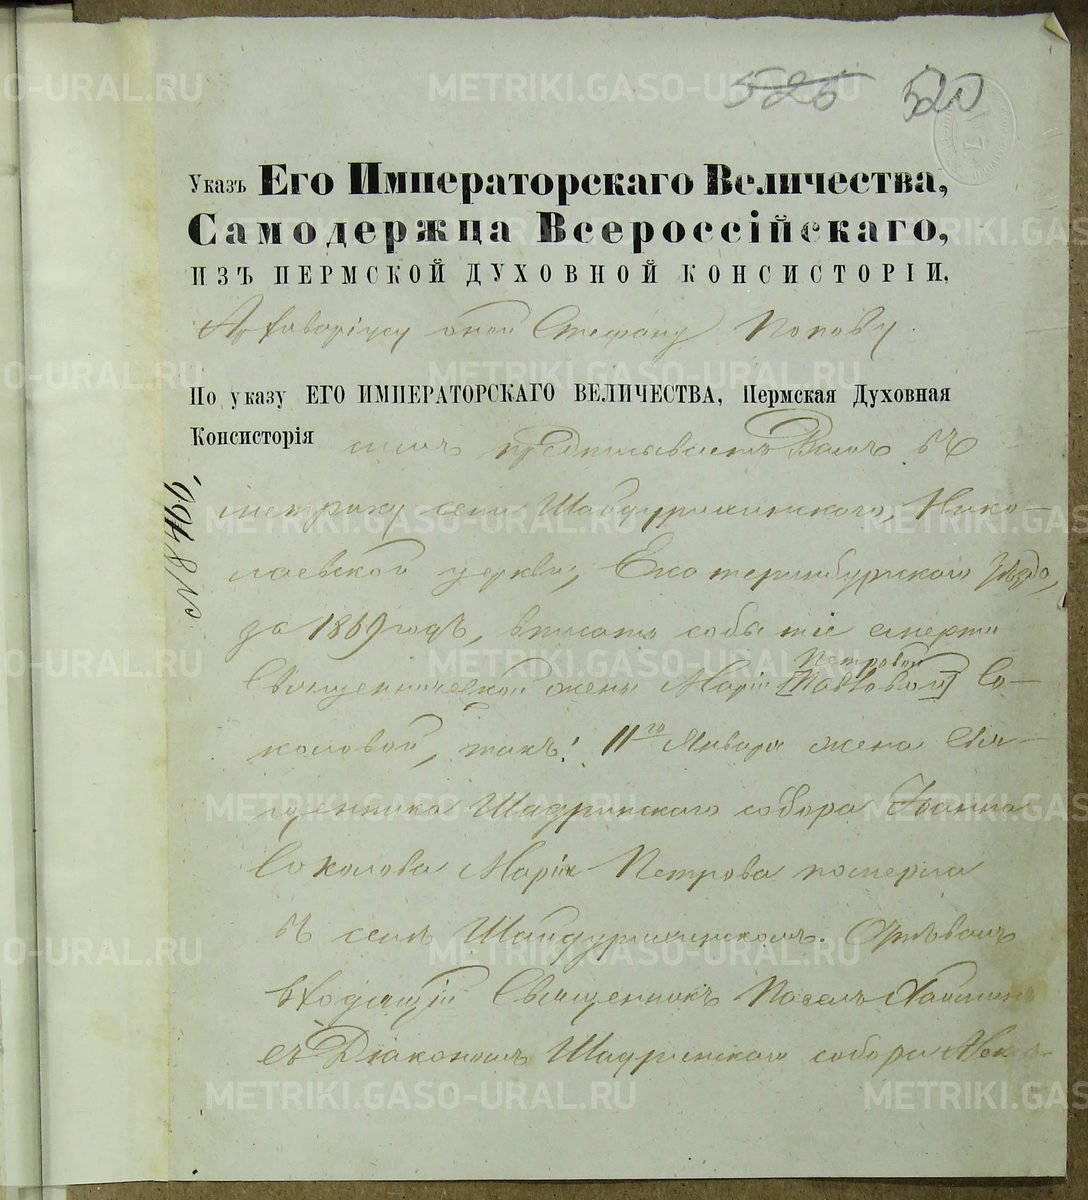 525 520
Указъ Его Императорскаго Величества,
Самодержца Всероссійскаго,
ИЗЪ ПЕРМСКОЙ ДУХОВНОЙ КОНСИСТОРІИ,
Архиваріусу оной Стефану Попову.
По указу ЕГО ИМПЕРАТОРСКАГО ВЕЛИЧЕСТВА, Пермская Духовная
Консисторія симъ предписываетъ Вамъ въ
№ 8466.
метрику села Шайдурихинскаго, Нико-
лаевской церкви, Екатеринбургскаго уѣзда,
за 1869 годъ, вписать событіе смерти
Петровой
Священнической жены Маріи [Павловой] Со-
коловой, такъ: 11го Января жена Свя-
щенника Шадринскаго собора Іоанна
Соколова Марія Петрова померла
въ селѣ Шайдурихинскомъ. Отпѣвалъ
входящій Священникъ Павелъ
съ Діакономъ Шадринскаго собора
METRIKI.GASO-URAL.RU